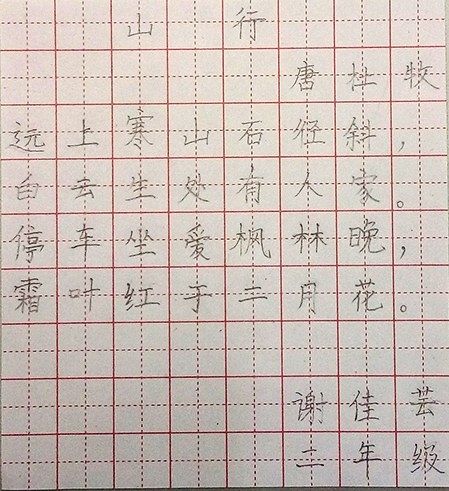 山行
唐杜牧
远上寒山石径斜，
白云生处有人家。
停车坐爱枫林晚，
霜叶红于二月花。
谢佳芸
二年级